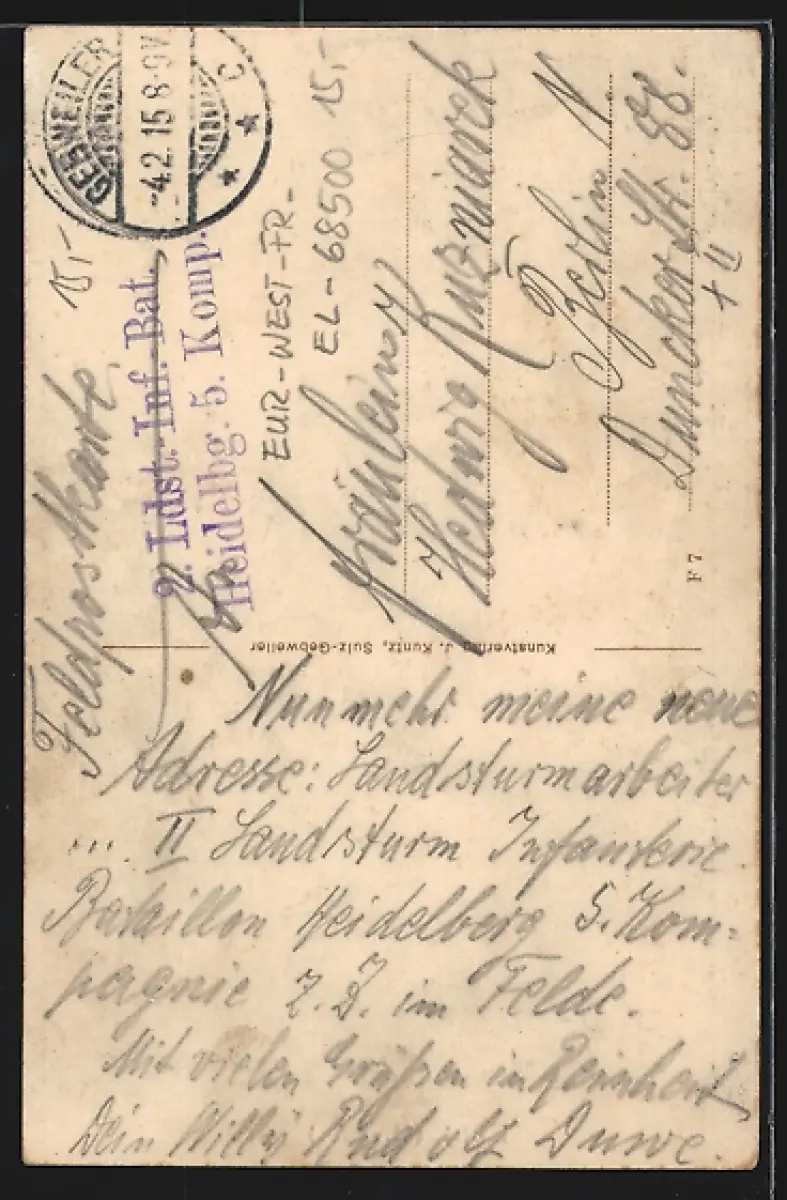 GEBWEILER
-4.2.15 8-9V.
c
Feldpostkarte
15,-
2. Ldst.-Inf.-Bat.
Heidelbg. 5. Komp.
EUR-WEST-FR-
EL-68500 15,-
An
Fräulein
Hedwig Kuzniarek
Berlin N
Duncker Str. 88.
+ II
F 7
Kunstverlag J. Kuntz, Sulz-Gebweiler
Nunmehr meine neue
Adresse: Landsturmarbeiter
... II Landsturm Infanterie
Bataillon Heidelberg 5. Kom-
pagnie z. Z. im Felde.
Mit vielen Grüßen in
Dein Willy Rudolf Duwe.